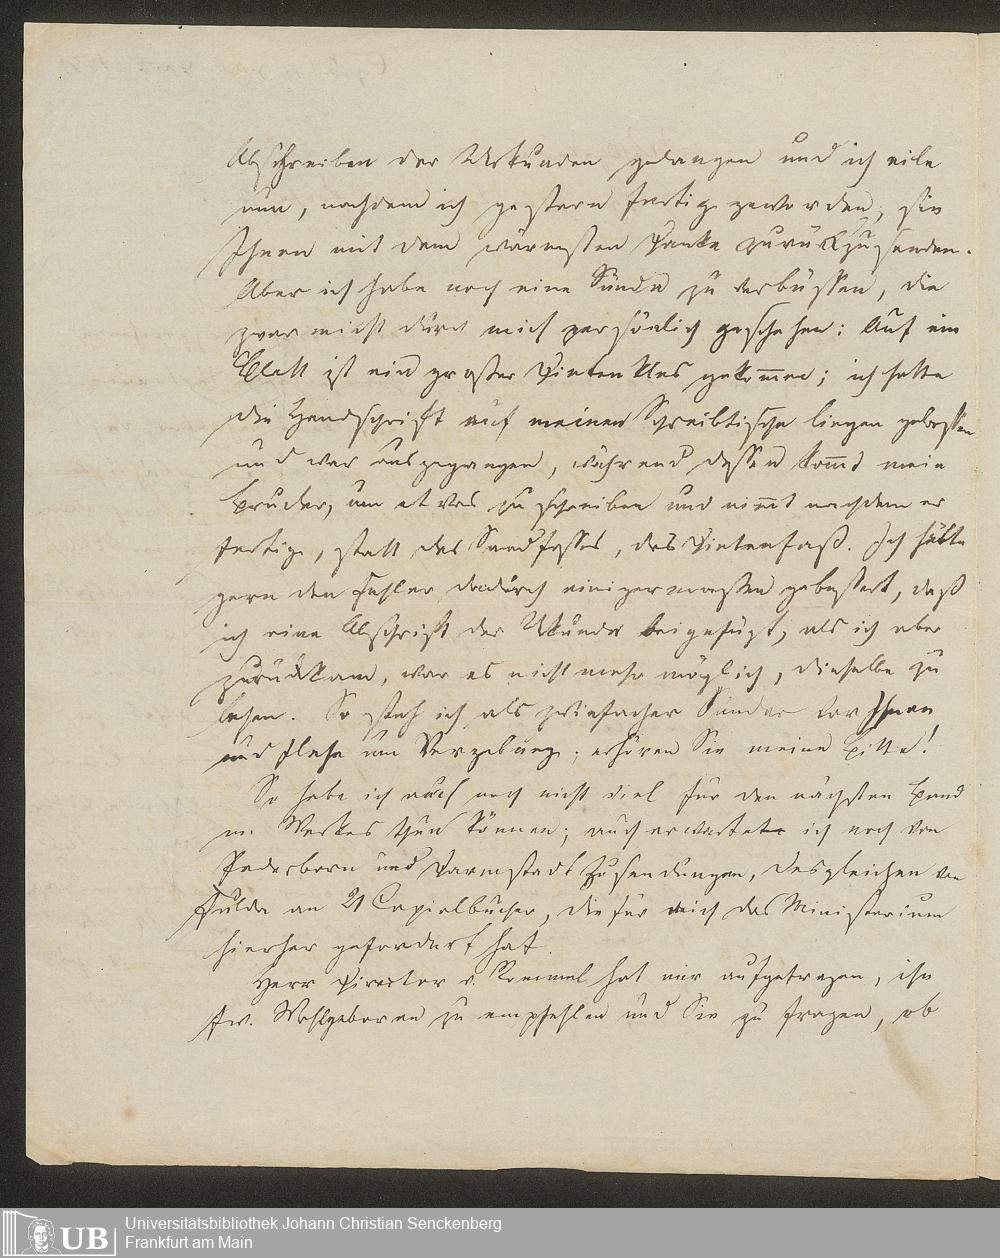 Abschreiben der Urkunden gelangen und ich eile
nun, nachdem ich gestern fertig geworden, sie
Ihnen mit dem wärmsten Danke zurückzusenden.
Aber ich habe noch eine Sünde zu verbüssen, die
zwar nicht durch mich persönlich geschehen: Auf ein
Blatt ist ein grosser Dintenklex gekom̄en; ich hatte
die Handschrift auf meinem Schreibtische liegen gelassen
und war ausgegangen, während dessen kom̄t mein
Bruder, um etwas zu schreiben und nim̄t nachdem er
fertig, statt des Sandfasses, das Dintenfaß. Ich hätte
gern den Fehler dadurch einigermassen gebessert, daß
ich eine Abschrift der Urkunde beigefügt, als ich aber
zurückkam, war es nicht mehr möglich, dieselbe zu
lesen. So steh ich als zwiefacher Sünder vor Ihnen
und flehe um Verzebung; erhören Sie meine Bitte!
So habe ich auch noch nicht viel für den nächsten Band
m. Werkes thun können; auch erwartete ich noch von
Paderborn und Darmstadt Zusendungen, desgleichen von
Fulda an 21 Copialbücher, die für mich das Ministerium
hierher gefordert hat.
Herr Director v. Rommel hat mir aufgetragen, ihn
Ew. Wohlgeboren zu empfehlen und Sie zu fragen, ob
UB
Universitätsbibliothek Johann Christian Senckenberg
Frankfurt am Main